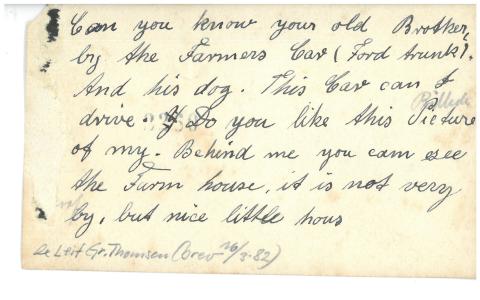 Can you know your old Brother,
by the Farmers Car (Ford trunk).
And his dog. This Car can I
drive. Do you like this Picture
of my. Behind me you cam see
the Farm house, it is not very
by, but nice little hous
Leif Gr. Thomsen (brev 16/3-82)